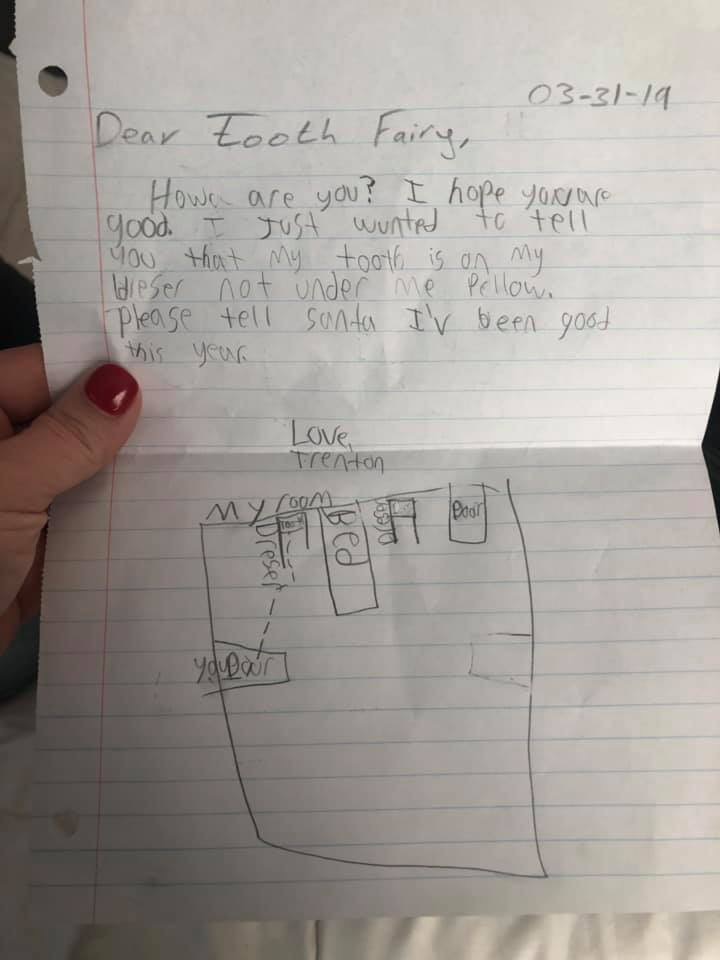 03-31-19
Dear Tooth Fairy,
How are you? I hope you are
good. I Just wunted to tell
you that my tooth is on my
dreser not under me pellow.
please tell santa I'v been good
this year.
Love,
Trenton
My room
Dreser
Bed
Door
you Door